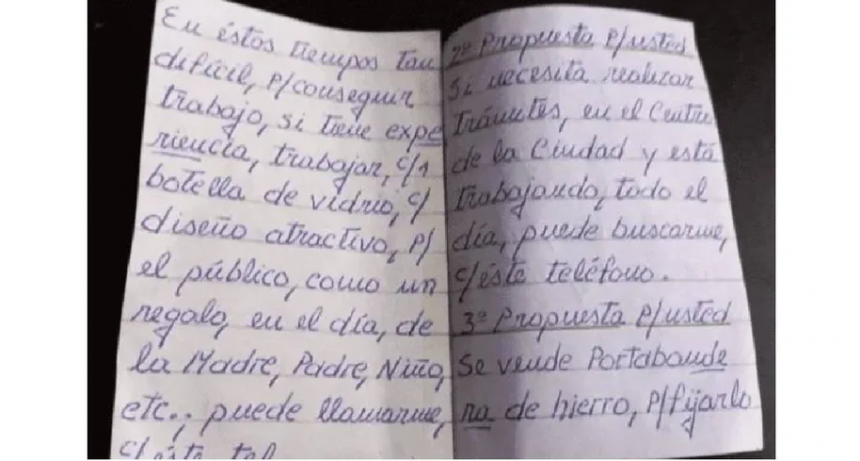 En éstos tiempos tan
difícil, p/conseguir
trabajo, si tiene expe
riencia, trabajar, c/1
botella de vidrio, c/
diseño atractivo, p/
el público, como un
regalo, en el día, de
la Madre, Padre, Niño,
etc., puede llamarme,
c/éste tel
2º Propuesta P/usted
Si necesita realizar
Trámites, en el Centro
de la Ciudad y está
trabajando, todo el
día, puede buscarme,
c/éste teléfono.
3º Propuesta P/usted
Se vende Portabande
ra de hierro, p/fijarlo